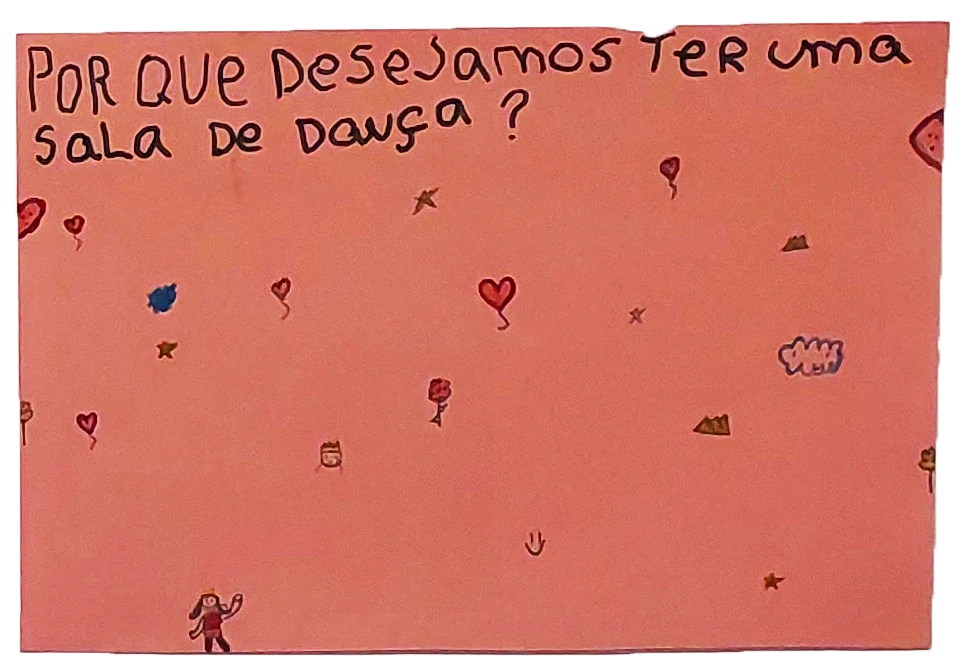 POR QUE DeSeJamos Ter uma
Sala De Dança ?